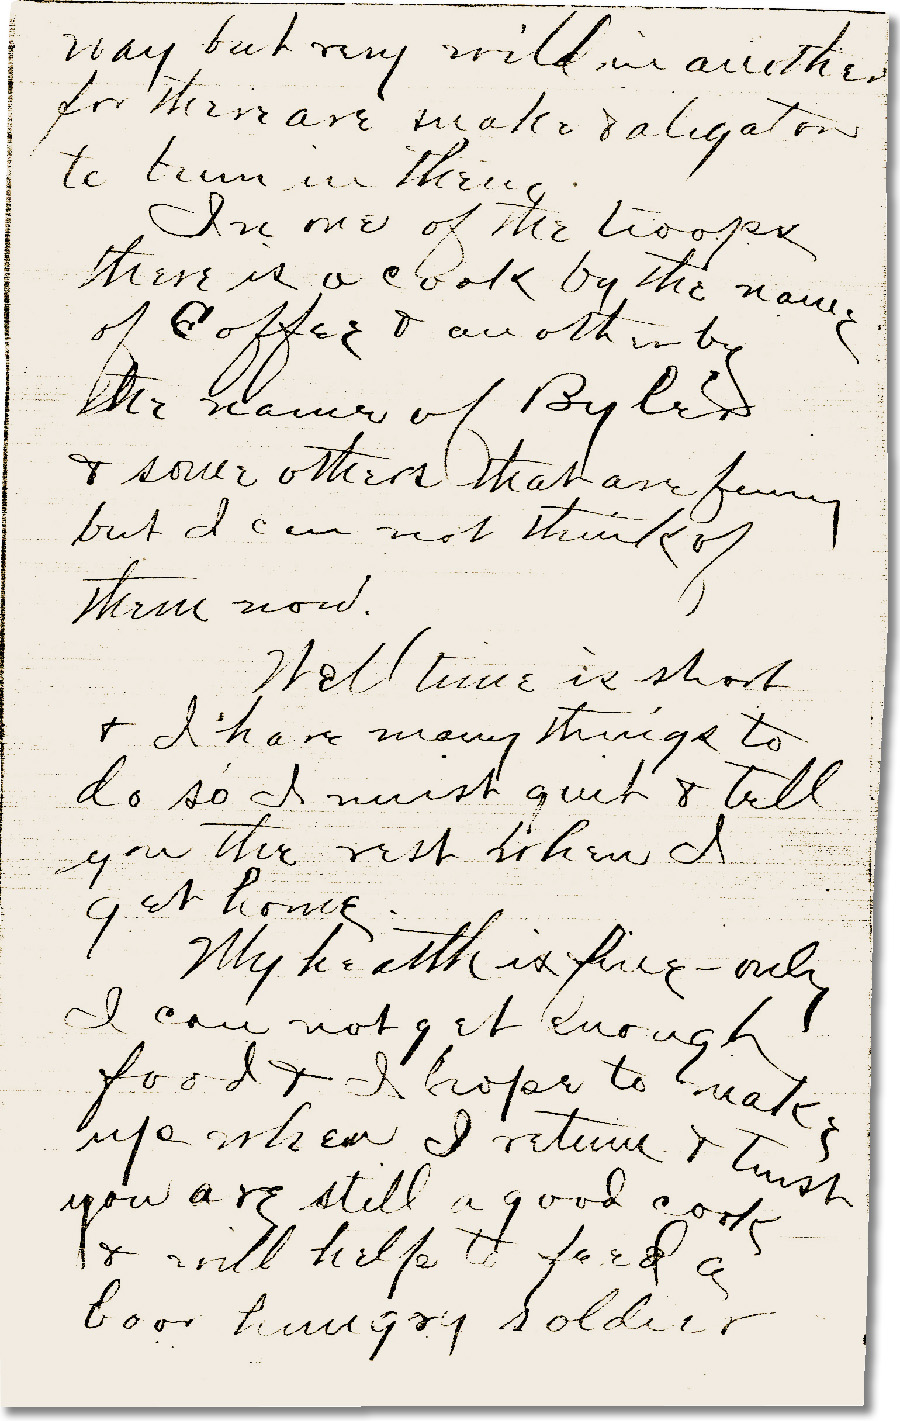 way but very wild in another
for there are snake & aligator
to burn in them.
In one of the troops
there is a cook by the name
of Coffee & another by
the name of Byler
& some others that are funny
but I can not think of
them now.
Well time is short
& I have many things to
do so I must quit & tell
you the rest when I
get home.
My health is fine - only
I can not get enough
food & I hope to make
up when I return & trust
you are still a good cook
& will help to feed a
poor hungry soldier